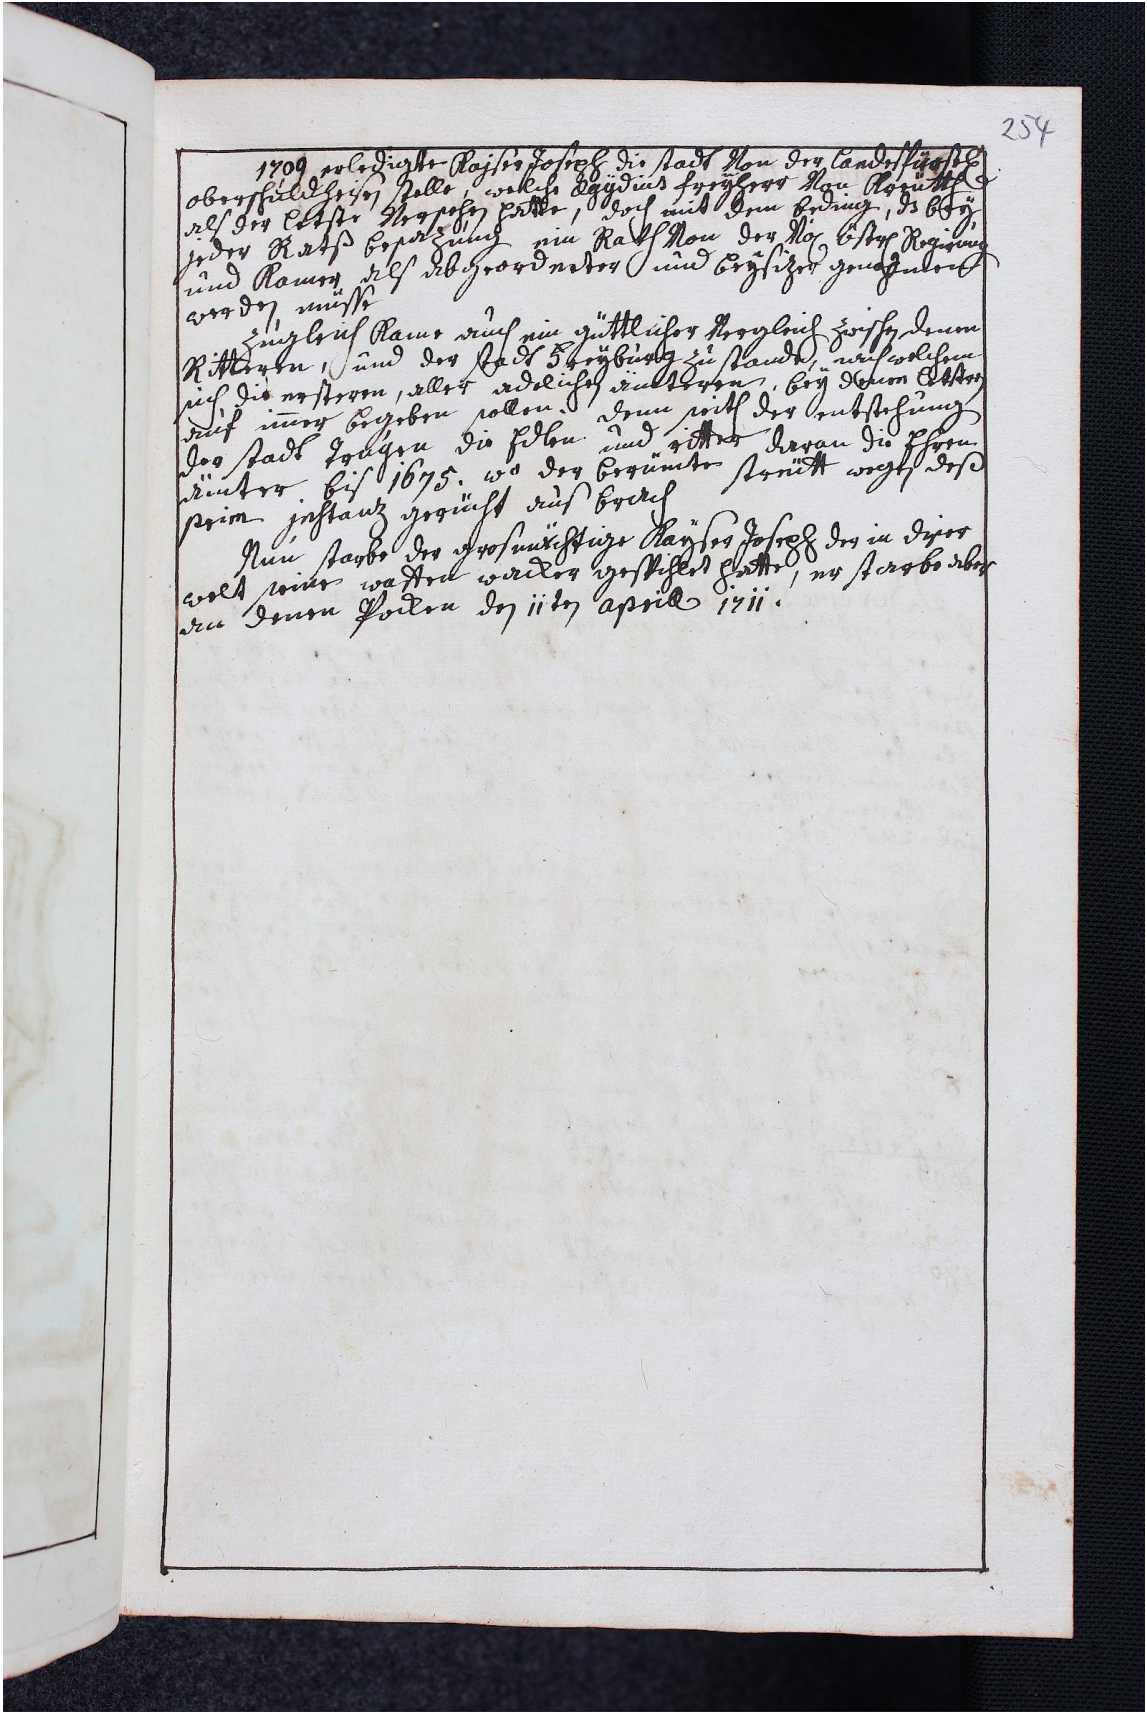 254
1709 erledigte Kajser Joseph die stadt Von der Landesfürstl
oberschuldheisen stelle, welche Ägydius freyherr Von Kreutth
als der letste Versehen hatte, doch mit dem beding, ds bey
jeder Raths besazung ein Rath Von der Vö österl Regirung
und Kamer als abgeordneter und beysizer genohmen
werden müsse
Zugleich Kame auch ein güttlicher Vergleich zwischen denen
Ritteren, und der stadt Freyburg zu stande, nach welchem
sich die ersteren, aller adelichen ämteren, bey denen letsteren
auf immer begeben sollen. denn seith der entstehung
der stadt Trugen die Edlen und ritter daran die Ehren
ämter bis 1675. wo der berümte streütt wegen deß
tanz gerücht aus brach
Nun starbe der grosmächtige Kayser Joseph der in diser
welt seine waffen wacker gespihlet hatte, er starbe aber
an denen Pocken den 11ten aprill 1711.